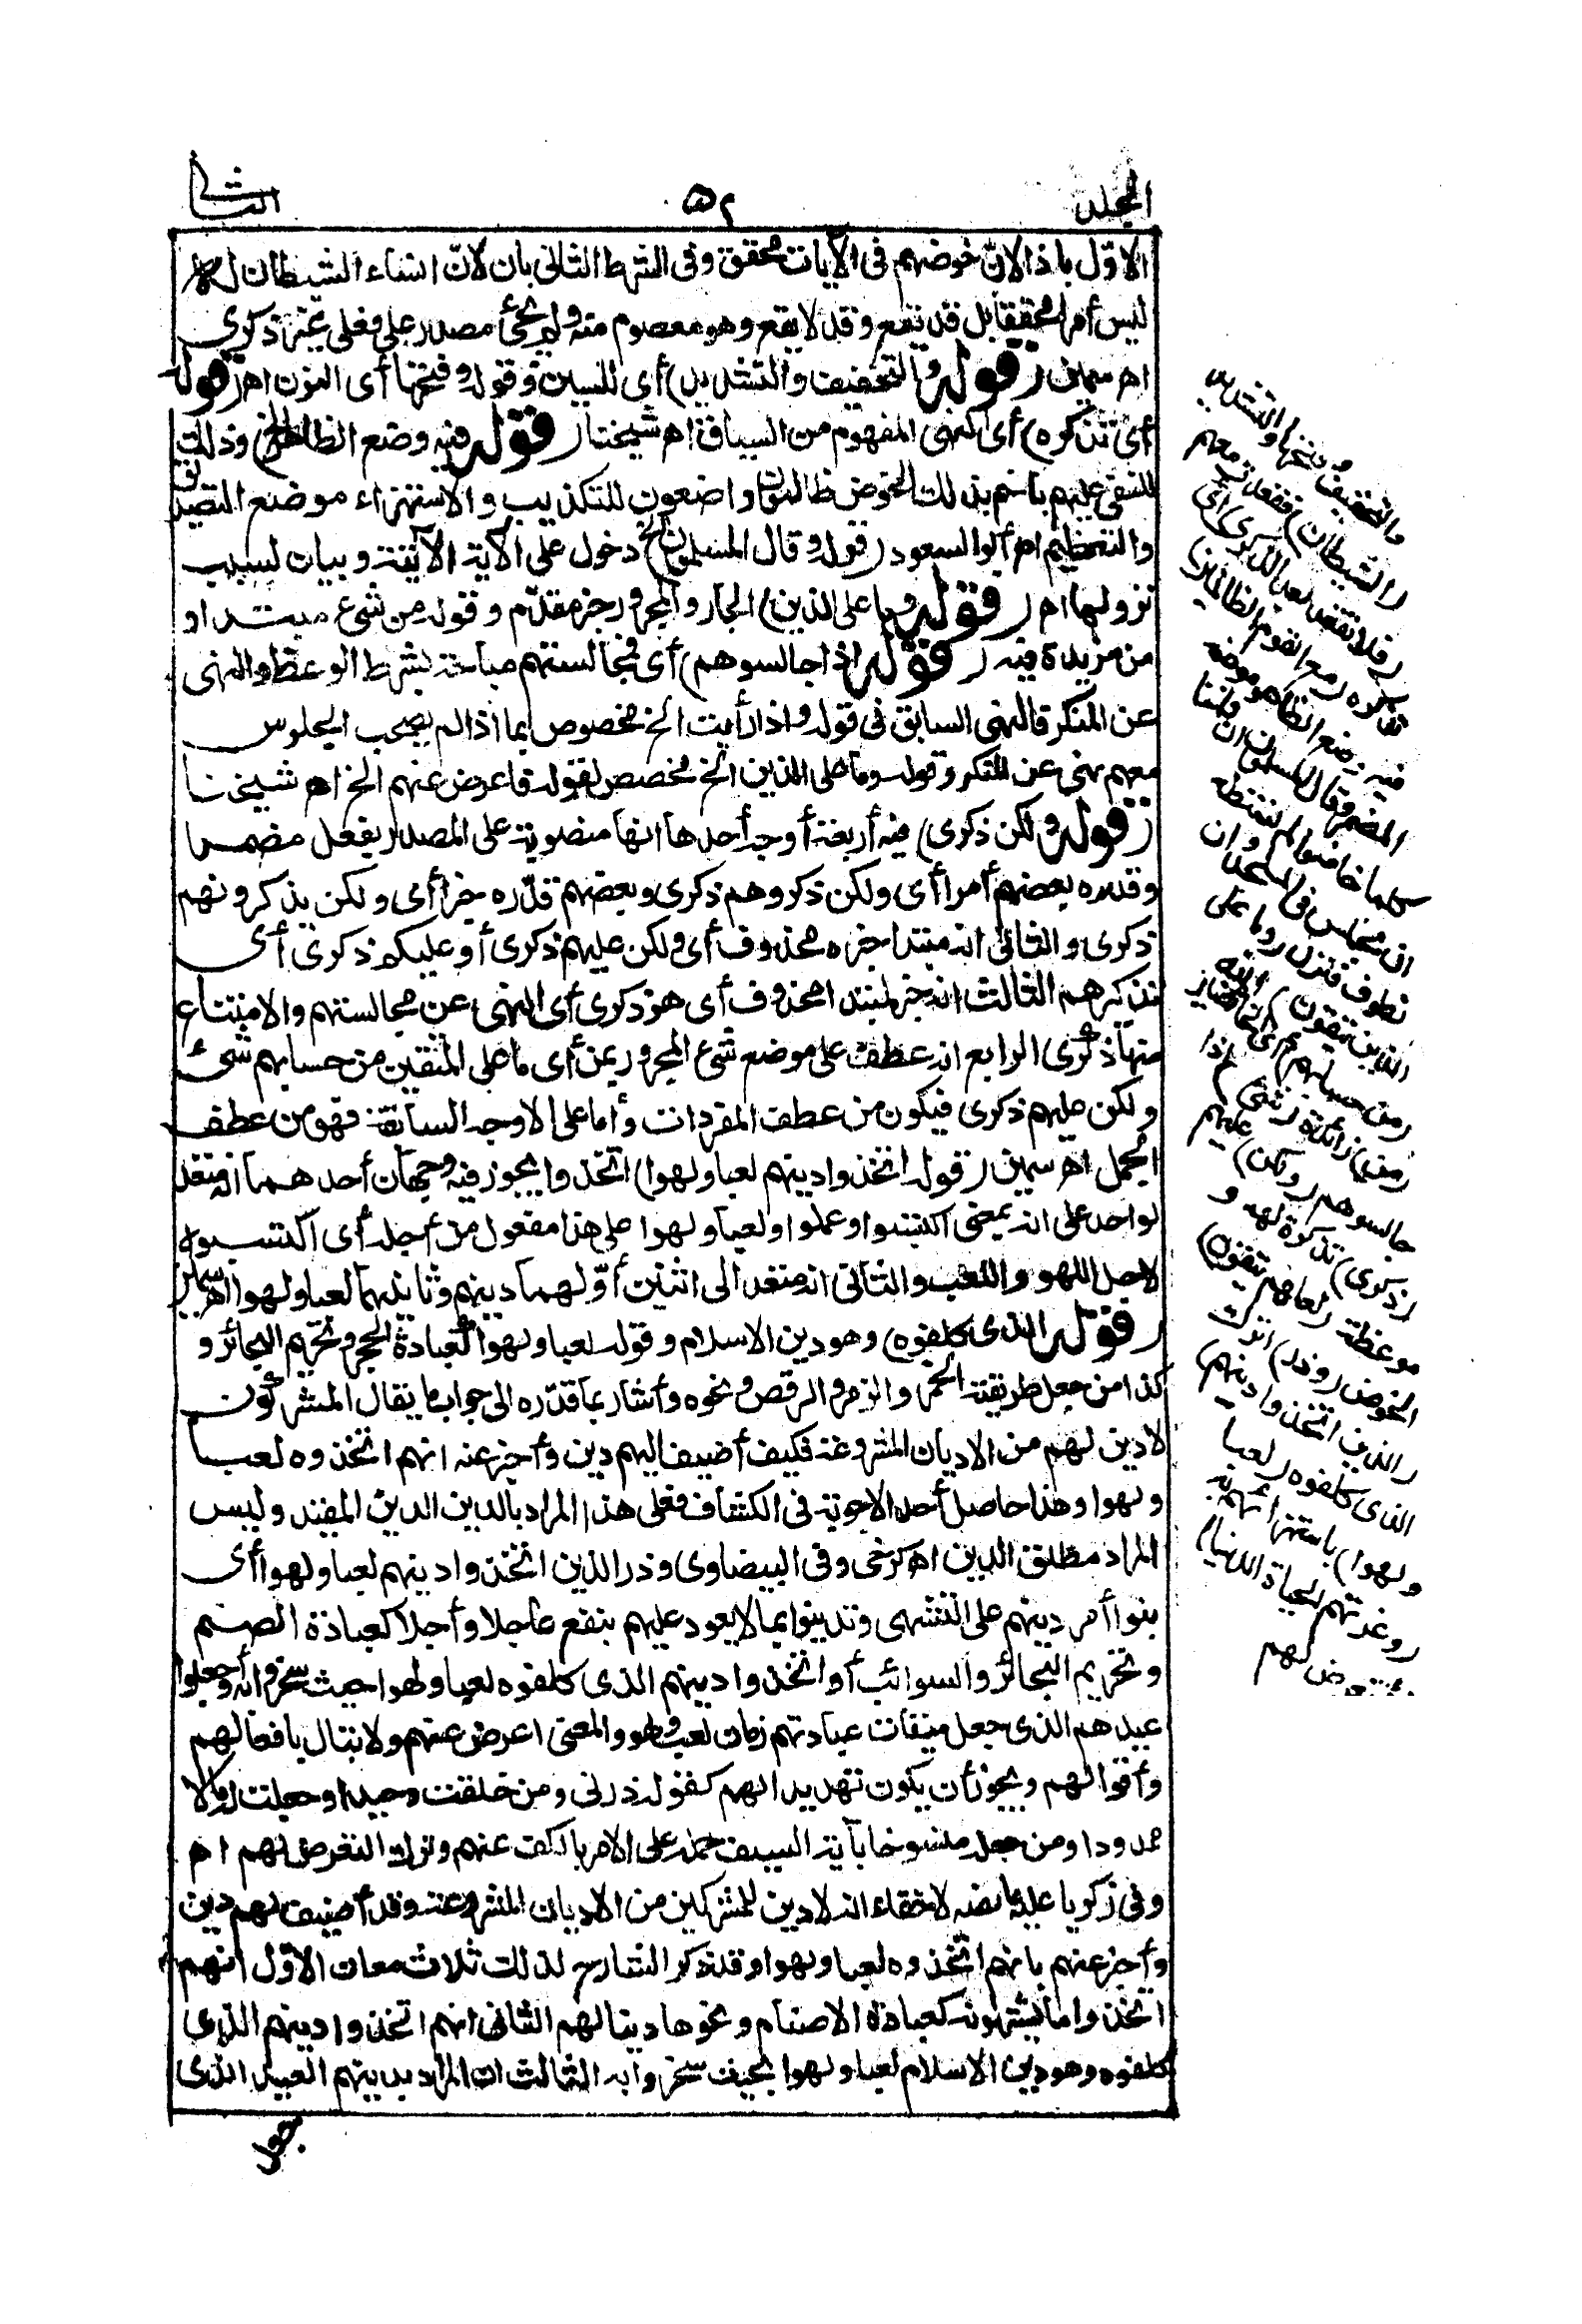 المجلد
٥٢
الثانى
الاوّل باذا لانّ خوضهم فى الآيات محقق وفى الشرط الثانى بان لانّ انساء الشيطان له
ليس أمرا محققا بل قد يقع وقد لا يقع وهو معصوم منه ولم يجئ مصدر على فعلى غير ذكرى
اهر سمين (قوله والتخفيف والتشديد) أى للسين وقوله وفتحها أى النون اهر (قوله
أى تذكره) أى النهى المفهوم من السياق اهر شيخنا (قوله فيه وضع الظاهر الخ) وذلك
للنعى عليهم بانهم بذلك الخوض ظالمون واضعون للتكذيب والاستهزاء موضع التصديق
والتعظيم اهر أبو السعود (قوله وقال المسلمون الخ) دخول على الآية الآتية وبيان لسبب
نزولها اهر (قوله وما على الذين) الجار والمجرور خبر مقدّم وقوله من شئ مبتدا و
من مزيدة فيه (قوله اذا جالسوهم) أى فمجالستهم مباحة بشرط الوعظ والنهى
عن المنكر فالنهى السابق فى قوله واذا رأيت الخ مخصوص بما اذا لم يصحب الجلوس
معهم نهى عن المنكر وقوله وما على الذين الخ مخصص لقوله فاعرض عنهم الخ اهر شيخنا
(قوله ولكن ذكرى) فيه أربعة أوجه أحدها انها منصوبة على المصدر بفعل مضمر
وقدره بعضهم أمرا أى ولكن ذكروهم ذكرى وبعضهم قدّره خبرا أى ولكن يذكرونهم
ذكرى والثانى انه مبتدا خبره محذوف أى ولكن عليهم ذكرى أو عليكم ذكرى أى
تذكيرهم الثالث انه خبر لمبتدا محذوف أى هو ذكرى أى النهى عن مجالستهم والامتناع
منها ذكرى الرابع انه عطف على موضع شئ المجرور بمن أى ما على المتقين من حسابهم شئ
ولكن عليهم ذكرى فيكون من عطف المفردات وأما على الاوجه السابقة فهو من عطف
الجمل اهر سمين (قوله اتخذوا دينهم لعبا ولهوا) اتخذوا يجوز فيه وجهان أحدهما انه متعد
لواحد على انه بمعنى اكتسبوا وعملوا ولعبا ولهوا على هذا مفعول من أجله أى اكتسبوه
لاجل اللهو واللعب والثانى انه متعد الى اثنين أوّلهما دينهم وثانيهما لعبا ولهوا اهر سمين
(قوله الذى كلفوه) وهو دين الاسلام وقوله لعبا ولهوا كعبادة الحجر وتحريم البحائر و
كذا من جعل طريقته الخمر والزمر والرقص ونحوه وأشار بما قدّره الى جواب ما يقال المشركون
لا دين لهم من الاديان المشروعة فكيف أضيف اليهم دين وأخبر عنه انهم اتخذوه لعبا
ولهوا وهذا حاصل أحد الاجوبة فى الكشاف فعلى هذا المراد بالدين الدين المقيد وليس
المراد مطلق الدين اهر كرخى وفى البيضاوى وذر الذين اتخذوا دينهم لعبا ولهوا أى
بنوا أمر دينهم على التشهى وتدينوا بما لا يعود عليهم بنفع عاجلا وأجلا كعبادة الصنم
وتحريم البحائر والسوائب أو اتخذوا دينهم الذى كلفوه لعبا ولهوا حيث سخروا به أو جعلوا
عيدهم الذى جعل ميقات عبادتهم زمان لعب ولهو والمعنى اعرض عنهم ولا تبال بافعالهم
وأقوالهم ويجوز أن يكون تهديدا لهم كقوله ذرنى ومن خلقت وحيدا وجعلت له مالا
ممدودا ومن جعله منسوخا بآية السيف حمله على الامر بالكف عنهم وترك التعرض لهم اهر
وفى زكريا عليه ما نصه لا خفاء انه لا دين للمشركين من الاديان المشروعة وقد أضيف لهم دين
وأخبر عنهم بانهم اتخذوه لعبا ولهوا وقد ذكر الشارح لذلك ثلاث معان الاوّل انهم
اتخذوا ما يشتهونه كعبادة الاصنام ونحوها دينا لهم الثانى انهم اتخذوا دينهم الذى
كلفوه وهو دين الاسلام لعبا ولهوا بحيث سخروا به الثالث ان المراد بدينهم العيد الذى
جعل
والتخفيف وفتحها والتشديد
(الشيطان) فقعدت معهم
(فلا تقعد بعد الذكرى) أى
تذكره (مع القوم الظالمين)
فيه وضع الظاهر موضع
المضمر وقال المسلمون ان قمنا
كلما خاضوا لم نستطع
ان نجلس فى المسجد وان
نطوف فنزل (وما على
الذين يتقون) الله
(من حسابهم) أى الخائضين
(من) زائدة (شئ) اذا
جالسوهم (ولكن) عليهم
(ذكرى) تذكرة لهم و
موعظة (لعلهم يتقون)
الخوض (وذر) اترك
(الذين اتخذوا دينهم)
الذى كلفوه (لعبا
ولهوا) باستهزائهم به
(وغرتهم الحياة الدنيا)
فلا تتعرض لهم